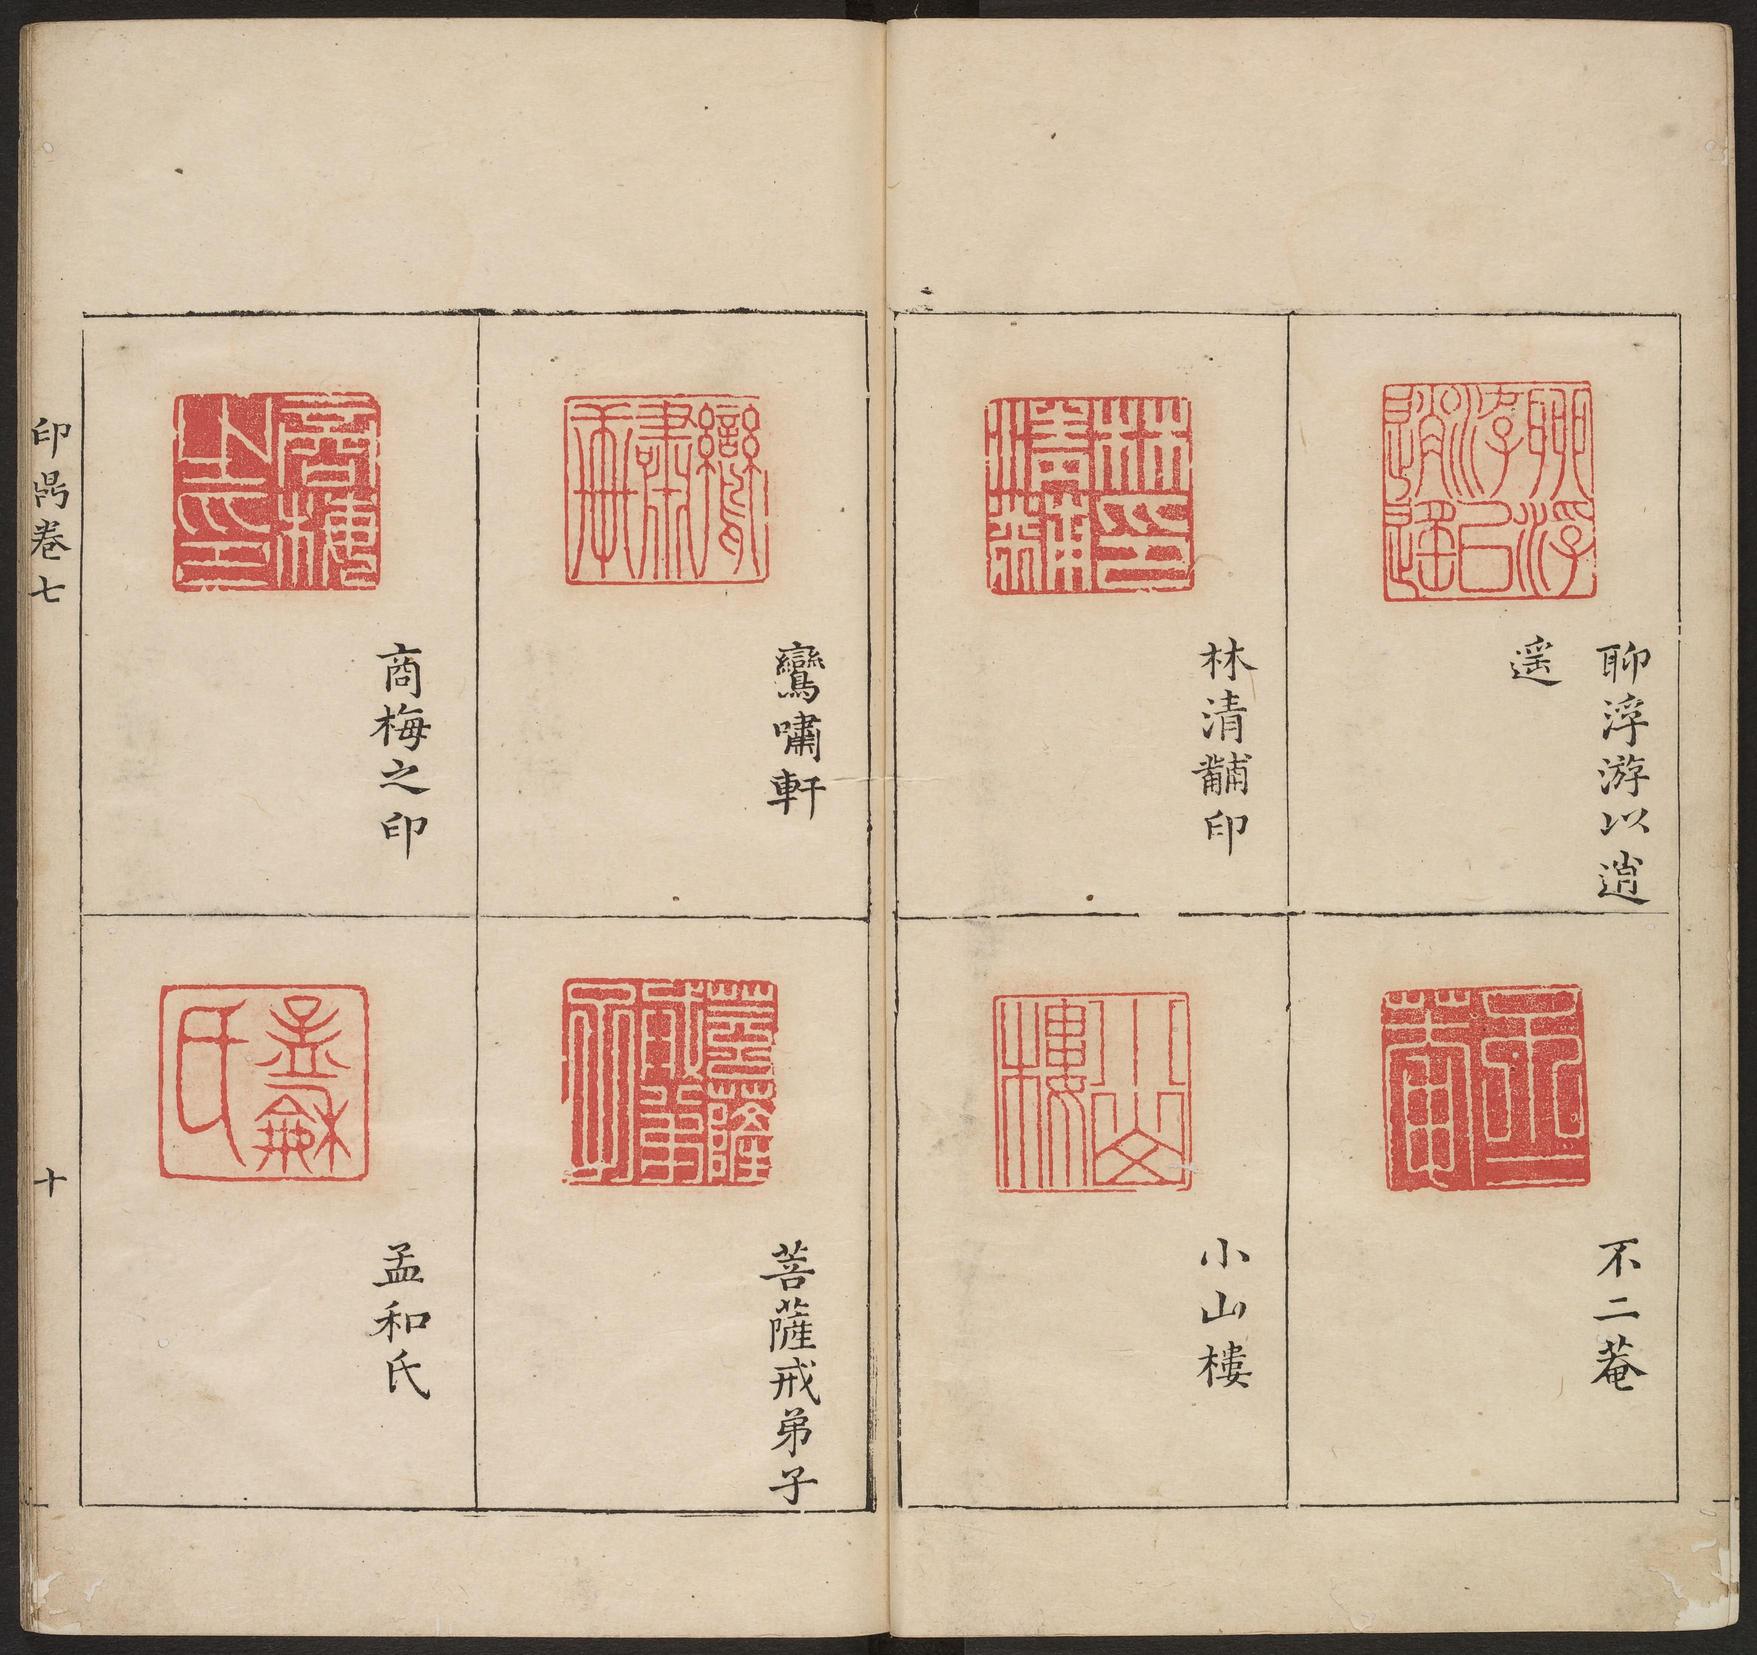 聊浮游以逍
遥
林清黼印
不二菴
小山樓
鸞嘯軒
商梅之印
菩薩戒弟子
孟和氏
印
卷七
十